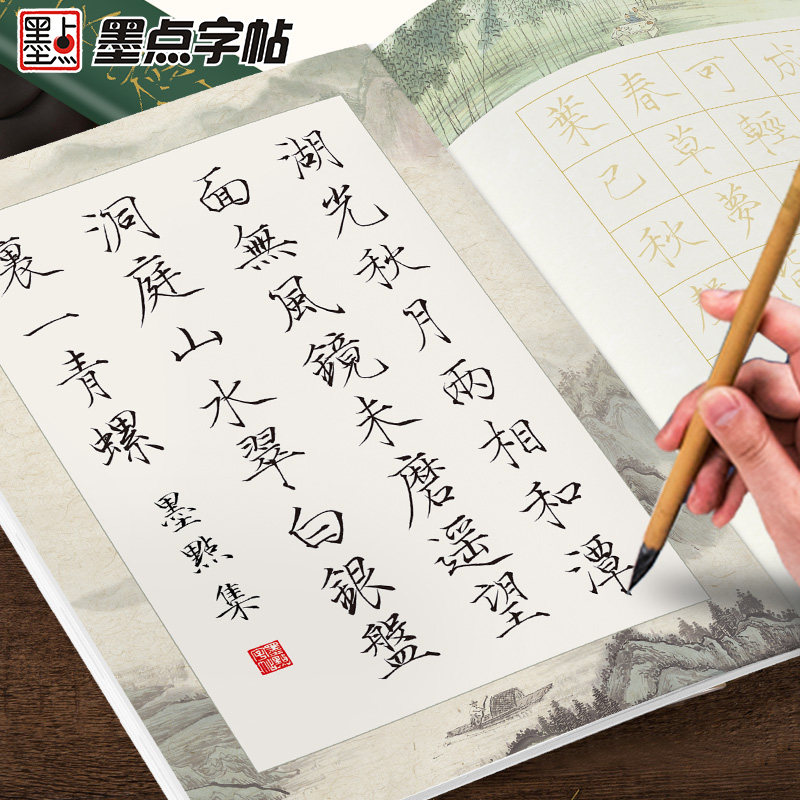 墨点
墨点字帖
湖光秋月兩相和潭
面無風鏡未磨遥望
洞庭山水翠白銀盤
裏一青螺
墨點集
成
可輕
春草夢
葉已秋聲